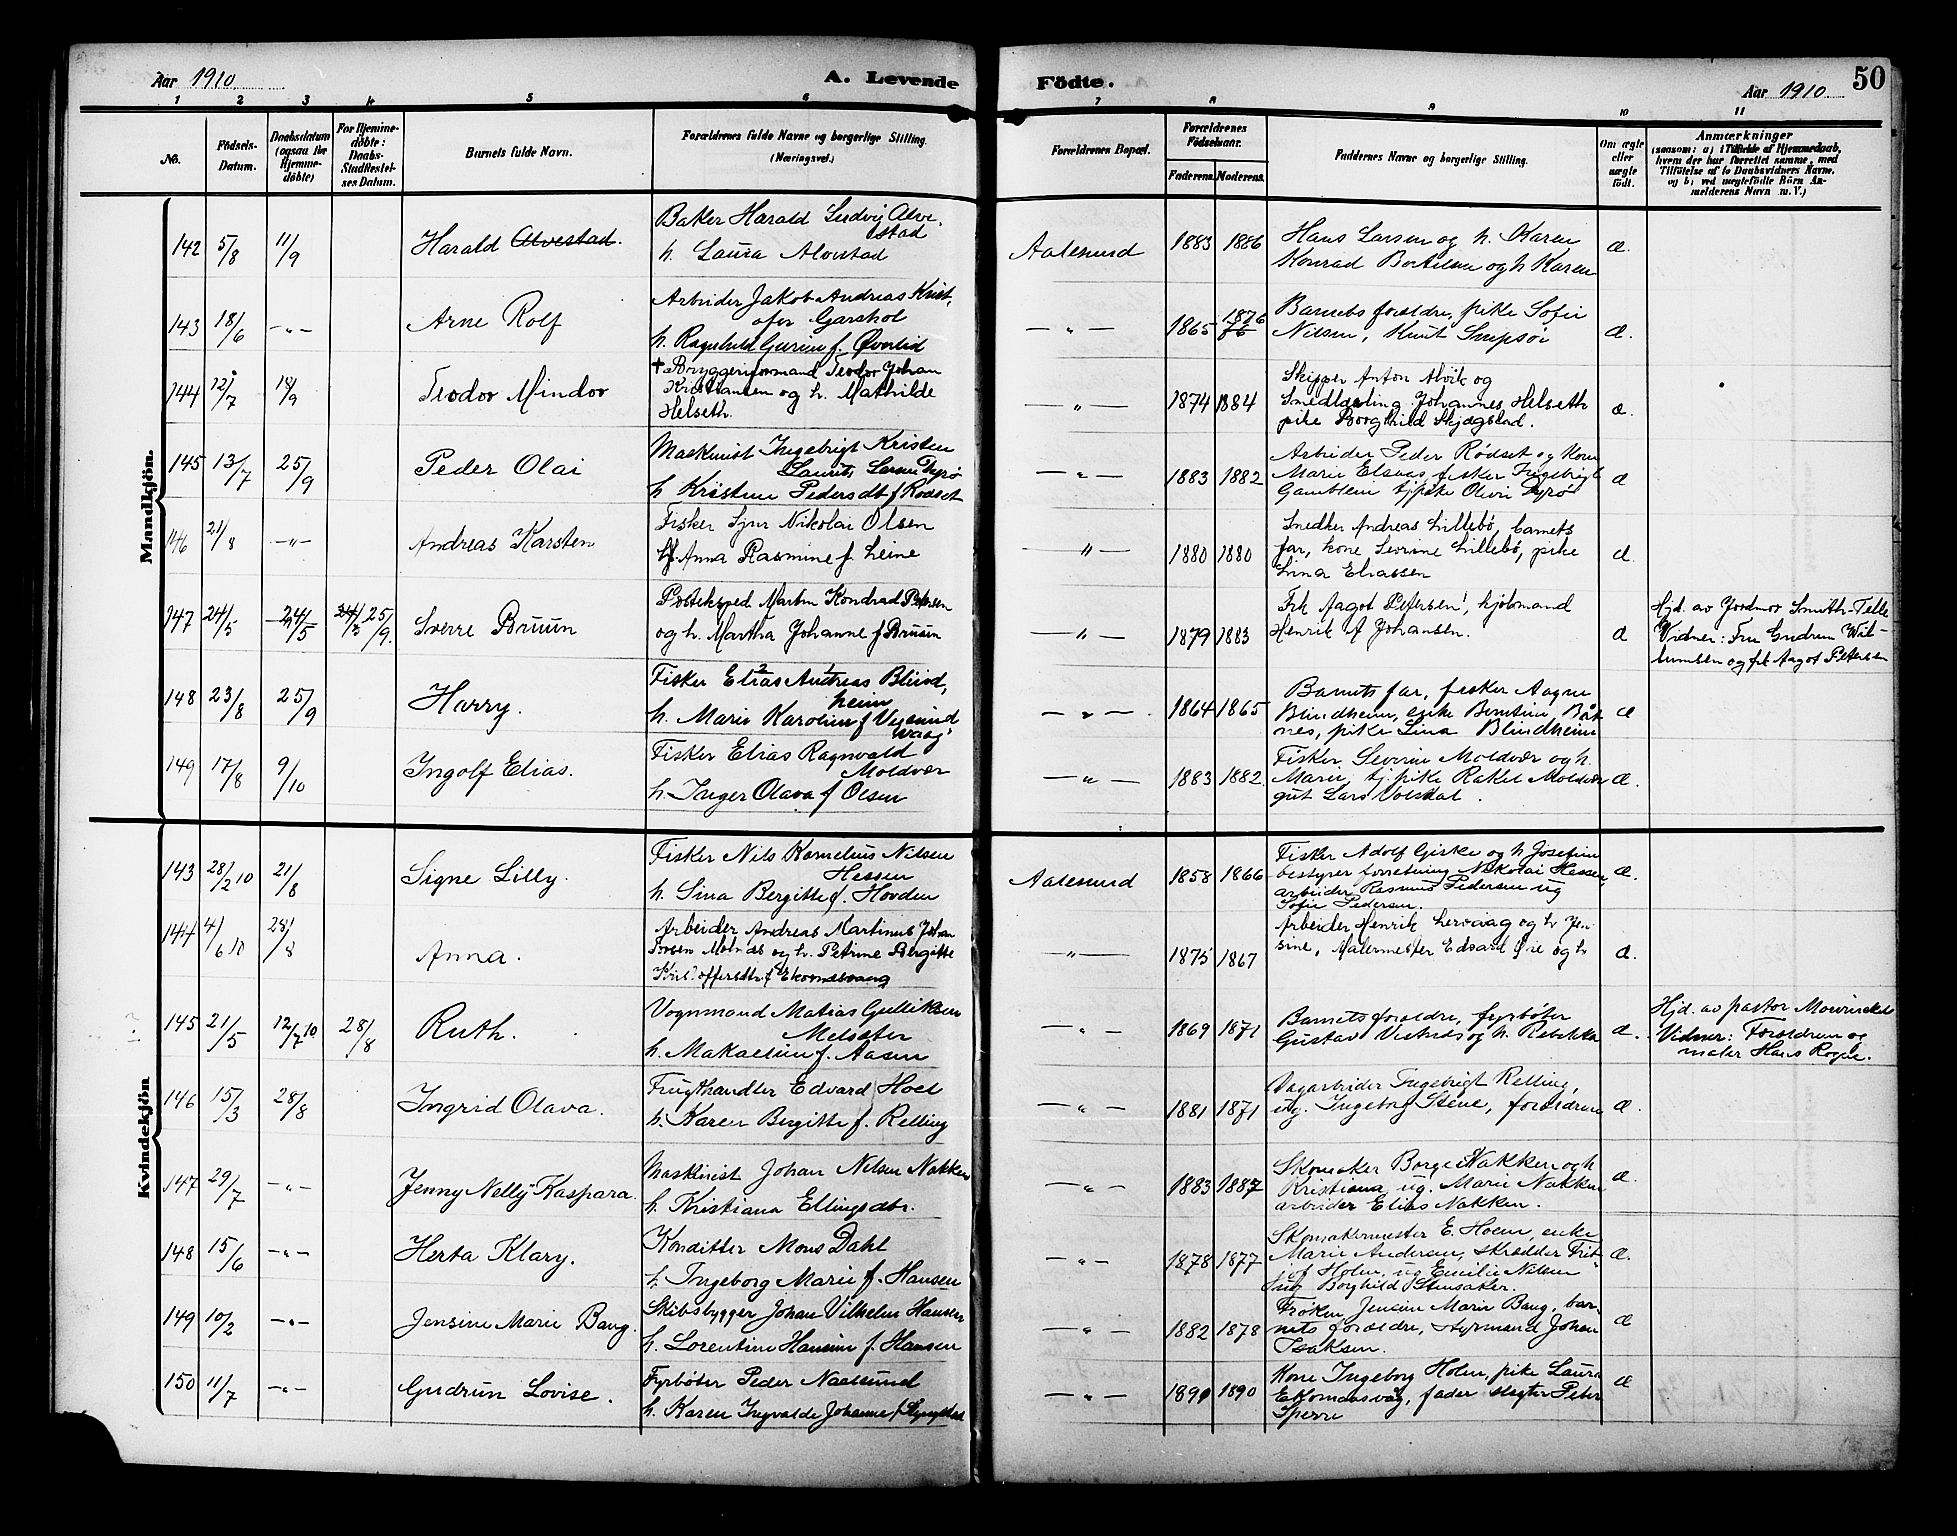 Aar 1910. A. Levende Födte. Aar 1910. 50
1 2 3 4 5 6 7 8 9 10 11
No.
Födsels-Datum.
Daabsdatum (ogsaa for Hjemme-döbte)
For Hjemme-döbte: Daabs-Stadfæstel-ses Datum.
Barnets fulde Navn.
Forældrenes fulde Navne og borgerlige Stilling.
(Næringsvei.)
Forældrenes Bopæl.
Forældrenes Födselsaar.
Faderens. Moderens.
Faddernes Navne og borgerlige Stilling.
Om ægte eller uægte födt.
Anmærkninger
(saasom: a) i Tilfælde af Hjemmedaab,
hvem der har forrettet samme, med
Tilföielse af to Daabsvidners Navne,
og b) ved uægtefödte Börn An-
melderens Navn m. V.)
Mandkjön.
142 5/8 11/9 Harald Alvestad. Baker Harald Ludvig Alve-
stad
h. Laura Alvestad
Aalesund 1883 1886 Hans Larsen og h. Karen
Konrad Bertelsen og h Karen
æ.
143 18/6 -"- Arne Rolf Arbeider Jakob Andreas Krist-
ofer Garshol
h. Ragnhild Gurine f. Øvrelid
— " — 1865 1876 76 Barnets forældre, pike Sofie
Nilsen, Knut Snipsøi
æ.
144 12/7 18/9 Teodor Mindor † Bryggeriformand Teodor Johan
Kristiansen og h. Mathilde
Helseth.
— " — 1874 1884 Skipper Anton Alvik og
Smedlærling Johannes Helseth
pike Borghild Skjegstad.
æ.
145 13/7 25/9 Peder Olai Maskinist Ingebrigt Kristen
Laurits Larsen Dyrø
h Kristine Pedersdt f Rødset
— " — 1883 1882 Arbeider Peder Rødset og Kone
Marie Elsaas, fisker Ingebrigt
Gamblem tj pike Olivi Dyrø
æ
146 21/8 -"- Andreas Karsten Fisker Sjur Nikolai Olsen
h. Anna Rasmine f Leine
— " — 1880 1880 Snedker Andreas Lillebø, barnets
far, kone Severine Lillebø, pike
Lina Eliassen
æ
147 24/5 24/5 24/5 25/9. Sverre Bruun Posteksped. Martin Kondrad Petersen
og h. Martha Johanne f Bruun
— " — 1879 1883 Frk Aagot Petersen, kjøbmand
Henrik A Johansen.
æ
Hjd. av Jordmor Smith-Telle
Vidner: Fru Gudrun Wil-
lumsen og frk Aagot Petersen
148 23/8 25/9 Harry. Fisker Elias Andreas Blind-
heim
h. Marie Karoline f Vegsund
vaag
— " — 1864 1865 Barnets far, fisker Aagne
Blindheim, enke Berntine Båt-
nes, pike Lina Blindheim
æ
149 17/8 9/10 Ingolf Elias. Fisker Elias Ragnvald
Moldvær
h. Inger Olava f Olsen
— " — 1883 1882 Fisker Severin Moldvær og h.
Marie, tj. pike Rakel Moldvær
gut Lars Volsdal.
æ.
Kvindekjön
143 28/2 10 21/8 Signe Lilly. Fisker Nils Kornelius Nilsen
Hessen
h. Lina Bergitte f. Hovden
Aalesund 1858 1866 Fisker Adolf Giske og h Josefine
bestyrer forretning Nikolai Hessen,
arbeider Rasmus Pedersen ug
Sofie Pedersen.
æ.
144 4/6 10 28/8 Anna. Arbeider Andreas Martinus Johan
Molnes og h. Petrine Bergitte
Kristoffersdtr f Ekornesvaag
— " — 1875 1867 Arbeider Henrik Lervaag og h Jen-
sine, Malermester Edvard Øie og h
æ.
145 21/5 12/7 10 28/8 Ruth. Vognmand Matias Gulliksen
Melsæter
h. Makaline f. Aasen
— " — 1869 1871 Barnets forældre, fyrbøter
Gustav Vestnes og h. Rebekka
æ.
Hjd. av pastor Mowinckel
Vidner: Forældrene og
maler Hans Rogne.
146 15/3 28/8 Ingrid Olava. Frugthandler Edvard Hoel
h. Karen Birgitte f. Relling
— " — 1881 1871 Veiarbeider Ingebrigt Relling,
ug. Ingeborg Stene, forældrene
æ.
147 29/7 -"- Jenny Nelly Kaspara. Maskinist Johan Nilsen Nakken
h. Kristiana Ellingsdtr.
— " — 1883 1887 Skomaker Borge Nakken og h
Kristiana, ug. Marie Nakken
arbeider Elias Nakken.
æ.
148 15/6 -"- Herta Klary. Konditter Mons Dahl
h. Ingeborg Marie f. Hansen
— " — 1878 1877 Skomakermester E. Hoem, enke
Marie Andersen, skrædder Frit-
jof Holm, ug Emilie Nilsen
ug Borghild Stensaker.
æ.
149 10/2 -"- Jensine Marie Bang. Skibsbygger Johan Vilhelm Hansen
h. Lorentine Hansine f. Hansen
— " — 1882 1878 Frøken Jensine Marie Bang, bar-
nets forældre, styrmand Johan
Isaksen.
æ
150 11/7 -"- Gudrun Lovise. Fyrbøter Peder Naalsund
h. Karen Ingvalda Johanne f
— " — 1890 Kone Ingeborg Holm, pike Laura
Ekornæsvåg, fader slagter Peter
Sperre
æ